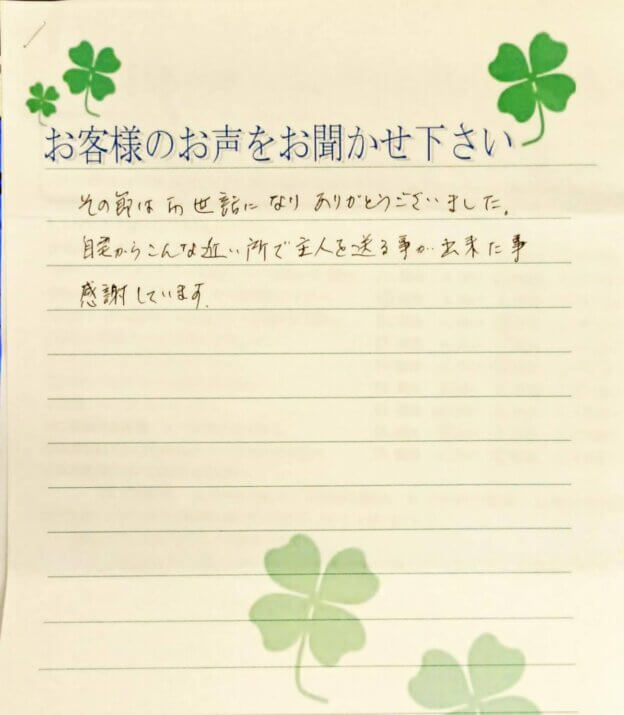 お客様のお声をお聞かせ下さい
その節はお世話になりありがとうございました。
自宅からこんな近い所で主人を送る事が出来た事
感謝しています。